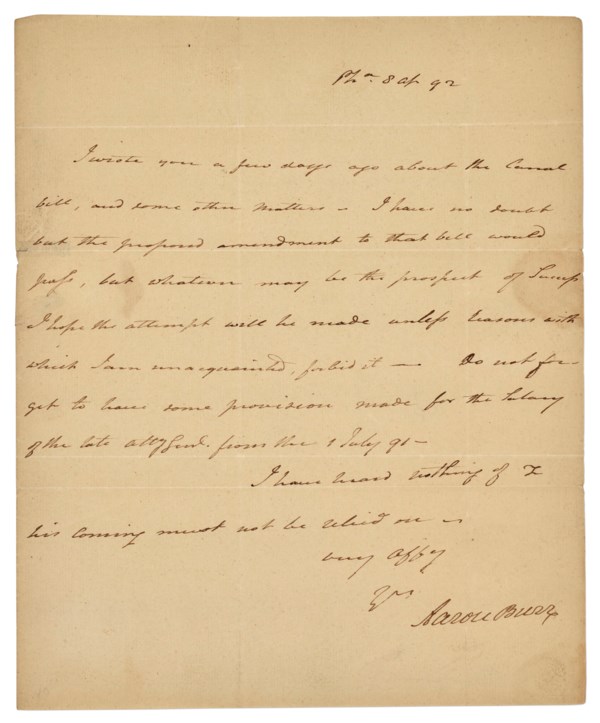 Pha. 8 Ap 92
I wrote you a few days ago about the Canal
bill, and some other matters – I have no doubt
but the proposed amendment to that bill would
pass, but whatever may be the prospect of Success
I hope the attempt will be made unless reasons with
which I am unacquainted, forbid it — Do not for-
get to have some provision made for the Salary
of the late Atty Genl. from the 1 July 91 –
I have heard nothing of X
his coming must not be relied on –
very affy
Yrs
Aaron Burr